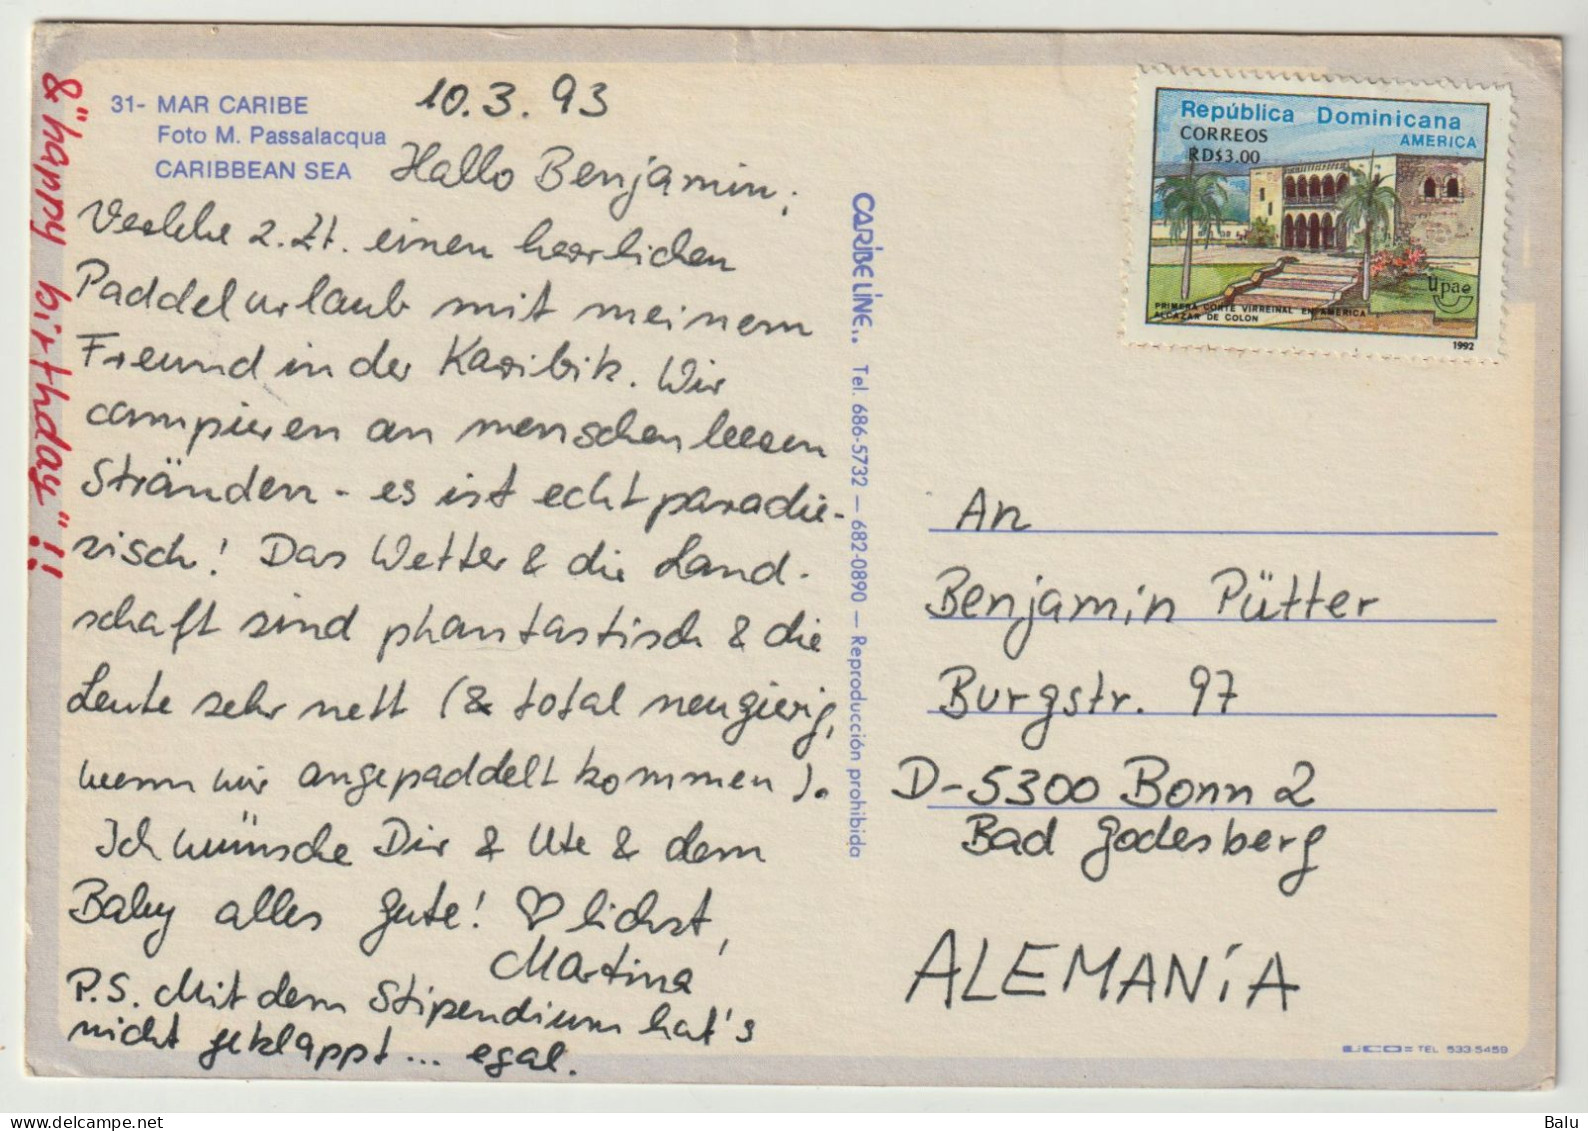 & "happy birthday"!!
31- MAR CARIBE
Foto M. Passalacqua
CARIBBEAN SEA
10.3.93
Hallo Benjamin,
z.Zt. einen herrlichen
Paddelurlaub mit meinem
Freund in der Karibik. Wir
campieren an menschenleeren
Stränden - es ist echt paradie-
sisch! Das Wetter & die Land-
schaft sind phantastisch & die
Leute sehr nett (& total neugierig,
wenn wir angepaddelt kommen).
Ich wünsche Dir & Ute & dem
Baby alles Gute! ♡lichst,
Martina
P.S. Mit dem Stipendium hat's
nicht geklappt... egal.
CARIBE LINE.. Tel. 686-5732 — 682-0890 — Reproducción prohibida
República Dominicana
CORREOS AMERICA
RD$3.00
upae
PRIMERA CORTE VIRREINAL EN AMERICA
ALCAZAR DE COLON
1992
An
Benjamin Pütter
Burgstr. 97
D-5300 Bonn 2
Bad Godesberg
ALEMANíA
TEL 533-5459
Balu